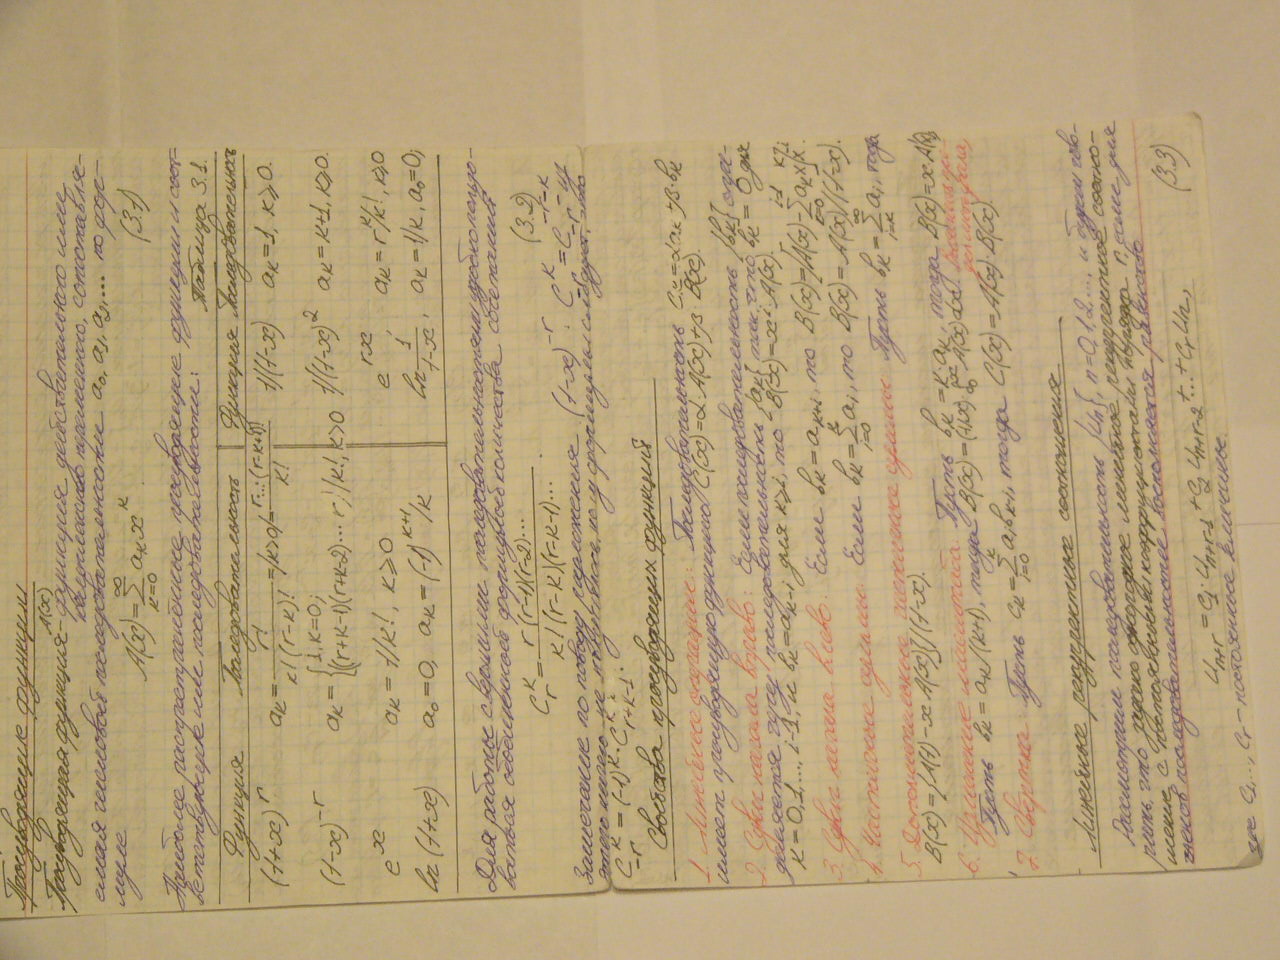 Производящие функции
Производящая функция A(x) - функция действительного или
комплексного переменного, сопоставля-
емая числовой последовательности a₀, a₁, a₂, ... по фор-
муле A(x) = ∑_{k=0}^{∞} aₖxᵏ. (3.1)
Наиболее распространённые производящие функции и соот-
ветствующие им последовательности: Таблица 3.1.
Функция Последовательность Функция Последовательность
(1+x)^r aₖ = r!/(k!(r-k)!) = |k>0| = r...(r-k+1)/k! 1/(1-x) aₖ=1, k≥0.
(1-x)^{-r} aₖ = {1, k=0; (r+k-1)(r+k-2)...r/k!, k>0 1/(1-x)² aₖ=k+1, k≥0.
e^x aₖ = 1/k!, k≥0 e^{rx} aₖ=r^k/k!, k≥0
ln(1+x) a₀=0, aₖ=(-1)^{k+1}/k ln 1/(1-x), aₖ=1/k, a₀=0;
Для работы с своими последовательностями удобно пользо-
ваться обобщённой формулой количества сочетаний
C_r^k = r(r-1)(r-2)... / k!(r-k)(r-k-1)... (3.2)
Замечание по поводу разложения (1-x)^{-r}: C_{-r}^k = C_{-r}^{-r-k}, из
этого
C_{-r}^k = (-1)^k · C_{r+k-1}^k.
Свойства производящих функций
1. Линейные операции: Последовательность cₖ=αaₖ+β·bₖ
имеет производящую функцию C(x)=α·A(x)+β B(x)
2. Сдвиг начала вправо: Если последовательность {bₖ} опре-
деляется через последовательность {aₖ} так, что bₖ=0 для
k=0,1,..., i-1, и bₖ=a_{k-i} для k≥i, то B(x)=x^i·A(x).
3. Сдвиг начала влево: Если bₖ=a_{k+i}, то B(x)=[A(x)-∑_{k=0}^{i-1} aₖxᵏ]/x^i.
4. Частичные суммы: Если bₖ=∑_{i=0}^{k} a_i, то B(x)=A(x)/(1-x).
5. Дополнительные частичные суммы Пусть bₖ=∑_{i=k}^{∞} a_i, тогда
B(x)=[A(1)-x A(x)]/(1-x).
6. Изменение масштаба. Пусть bₖ=k·aₖ, тогда B(x)=x·A'(x)
Пусть bₖ=aₖ/(k+1), тогда B(x)=(1/x)∫₀ˣ A(x)dx!
7. Свёртка Пусть cₖ=∑_{i=0}^{k} a_i b_{k-i}, тогда C(x)=A(x)·B(x).
Линейные рекуррентные соотношения
Рассмотрим последовательность {uₙ}, n=0,1,2..., и будем гово-
рить, что задано однородное линейное рекуррентное соотно-
шение с постоянными коэффициентами порядка r, если для
членов последовательностей выполняется равенство
u_{n+r} = c₁·u_{n+r-1} + c₂ u_{n+r-2} + ... + c_r uₙ, (3.3)
где c₁, ..., c_r - постоянные величины